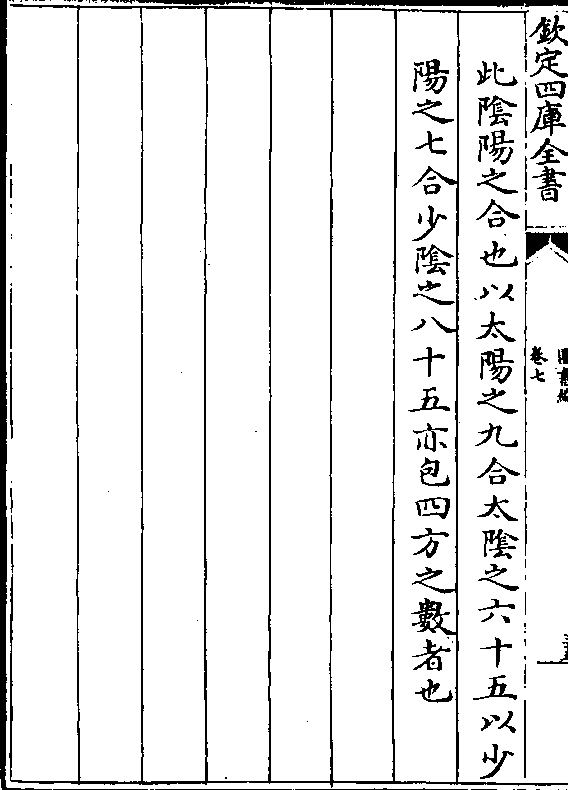 欽定四庫全書
卷七
此陰陽之合也以太陽之九合太陰之六十五以少
陽之七合少陰之八十五亦包四方之數者也